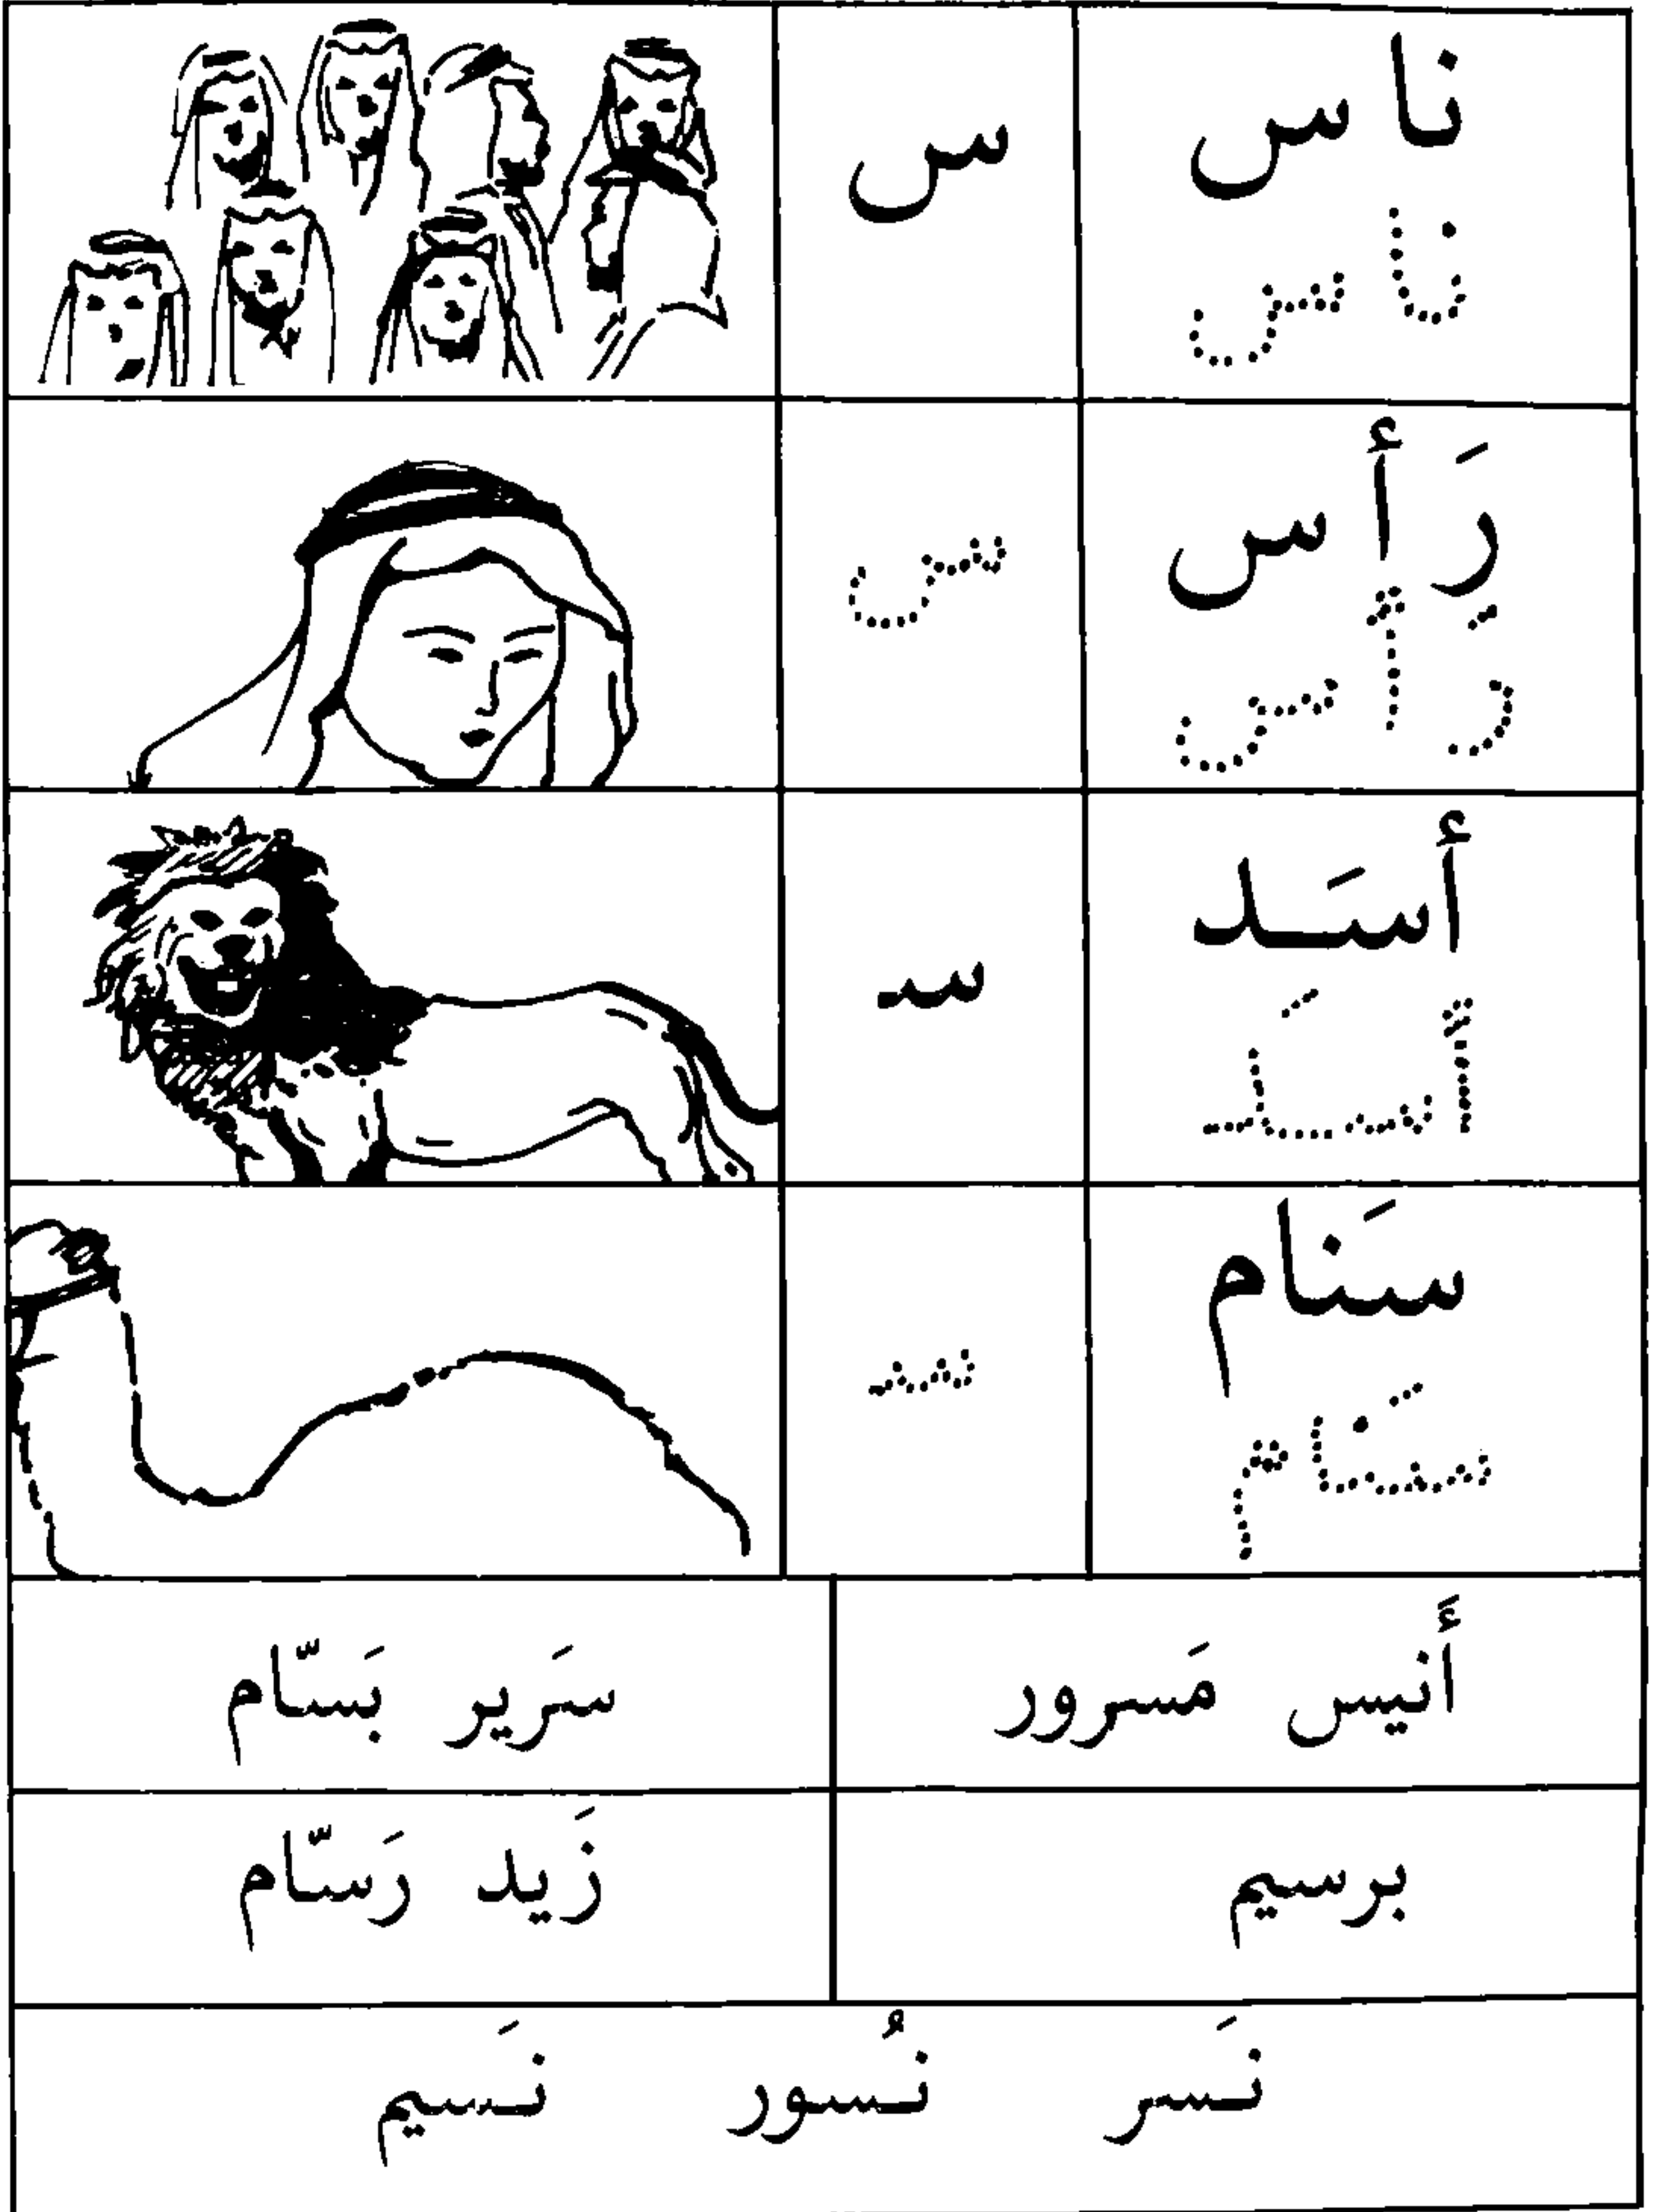 ناس س
ناس
رَأس س
رَأس
أسَد سـ
أسَد
سَنام سـ
سَنام
أَنيس مَسرور سَرير بَسّام
برسيم زَيد رَسّام
نَسر نُسور نَسيم